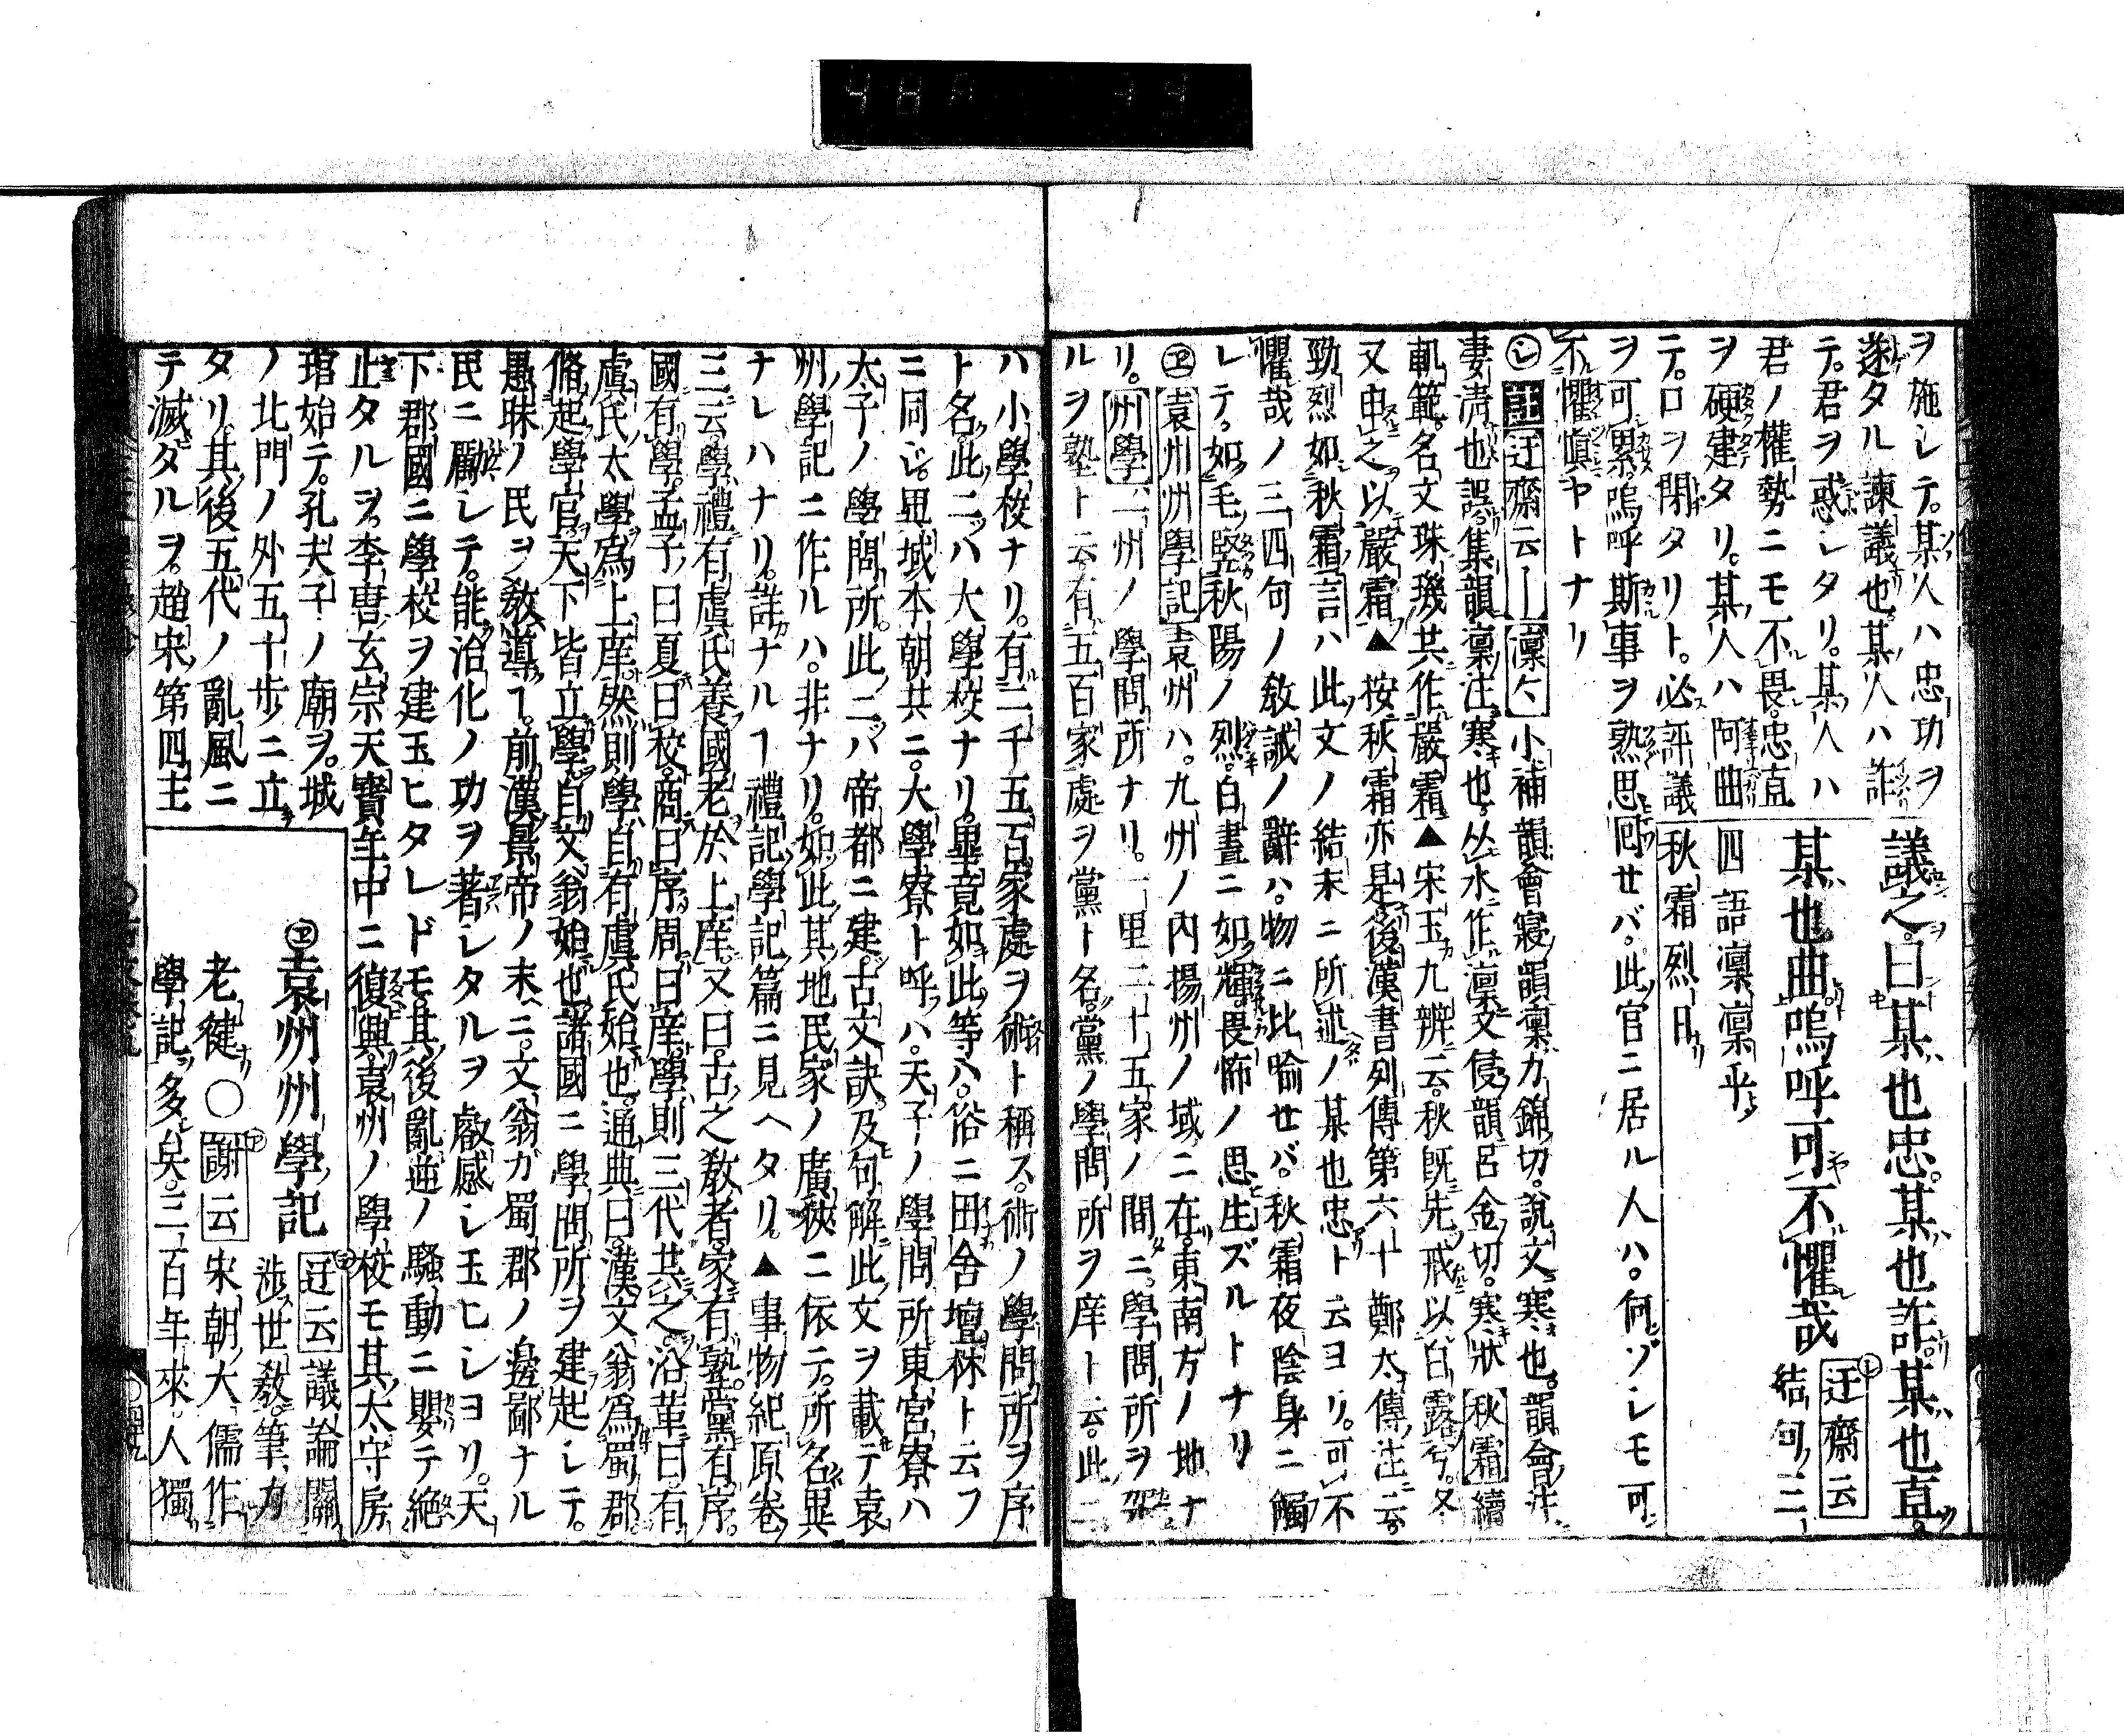 議之曰某也忠某也詐某也直
某也曲嗚呼可不懼哉 迂齋云
結句三
四語凛凛乎
秋霜烈日
ヲ施レテ某人ハ忠功ヲ
遂タル諫議也某人ハ詐
テ君ヲ惑レタリ某人ハ
君ノ權勢ニモ不畏忠直
ヲ硬建タリ某人ハ阿曲
ニテ口ヲ閉タリト必評議
ヲ可累嗚呼斯事ヲ熟思回セバ此官ニ居ル人ハ何ゾレモ可
不懼愼ヤトナリ
註 迂齋云 凛々 小補韻會寢韻凛力錦切說文寒也韻會注
妻淸也誤集韻凛注寒也从水作凛文侵韻呂金切寒狀 秋霜 續
軌範名文珠璣其作嚴霜▲宋玉九辨云秋既先戒以白露兮冬
又申之以嚴霜▲按秋霜亦是後漢書列傳第六十鄭太傳注云
勁烈如秋霜言ハ此文ノ結末ニ所述ノ某也忠ト云ヨリ可不
懼哉ノ三四句ノ敎誡ノ辭ハ物ニ比喻セバ秋霜夜陰身ニ觸
レテ如毛竪秋陽ノ烈白晝ニ如輝畏怖ノ思生ズルトナリ
袁州州學記 袁州ハ九州ノ內揚州ノ域ニ在東南方ノ地ナ
リ 州學 一州ノ學問所ナリ一里二十五家ノ間ニ學問所ヲ架
ルヲ塾ト云有五百家處ヲ黨ト名黨ノ學問所ヲ庠ト云此二
ハ小學校ナリ有二千五百家處ヲ術ト稱ス術ノ學問所ヲ序
ト名此ニハ大學校ナリ畢竟如此等ハ俗ニ田舍壇林ト云フ
ニ同じ異域本朝共ニ大學寮ト呼ハ天子ノ學問所東宮寮ハ
太子ノ學問所此二ハ帝都ニ建古文訣及句解此文ヲ載テ袁
州學記ニ作ルハ非ナリ如此其地民家ノ廣狹ニ依テ所名異
ナレハナリ詳ナルヿ禮記學記篇ニ見ヘタリ▲事物紀原卷
三云學禮有虞氏養國老於上庠又曰古之敎者家有塾黨有序
國有學孟子曰夏曰校商曰序周曰庠學則三代共之沿革曰有
虞氏太學爲上庠然則學自有虞氏始也通典曰漢文翁爲蜀郡
脩起學官天下皆立學自文翁始也諸國ニ學問所ヲ建起レテ
愚昧ノ民ヲ敎導ヿ前漢景帝ノ末ニ文翁ガ蜀郡ノ邊鄙ナル
民ニ勵レテ能治化ノ功ヲ著レタルヲ感レ玉ヒレヨリ天
下郡國ニ學校ヲ建玉ヒタレドモ其後亂逆ノ騷動ニ嬰テ絕
止タルヲ李唐玄宗天寶年中ニ復興袁州ノ學校モ其太守房
琯始テ孔夫子ノ廟ヲ城
ノ北門ノ外五十步ニ立
タリ其後五代ノ亂風ニ
テ滅タルヲ趙宋第四主
袁州州學記 迂云 議論關
涉世敎筆力
老健○ 謝云 宋朝大儒作
學記多矣三百年來人獨